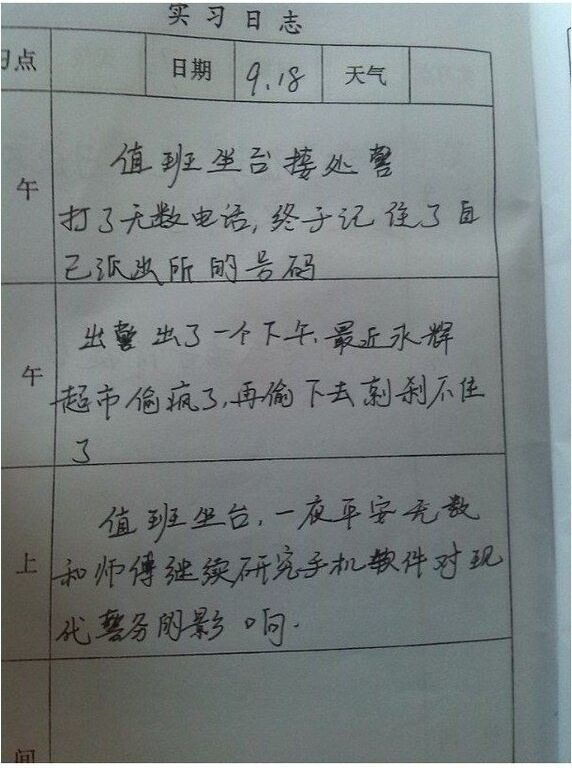 实习日志
习点 日期 9.18 天气
值班坐台接处警
午
打了无数电话,终于记住了自
己派出所的号码
出警出了一个下午.最近永辉
午
超市偷疯了,再偷下去刹不住
了
值班坐台,一夜平安无数
上
和师傅继续研究手机软件对现
代警务的影响.
间